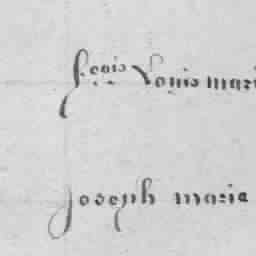 francois Louis mari
Joseph marie